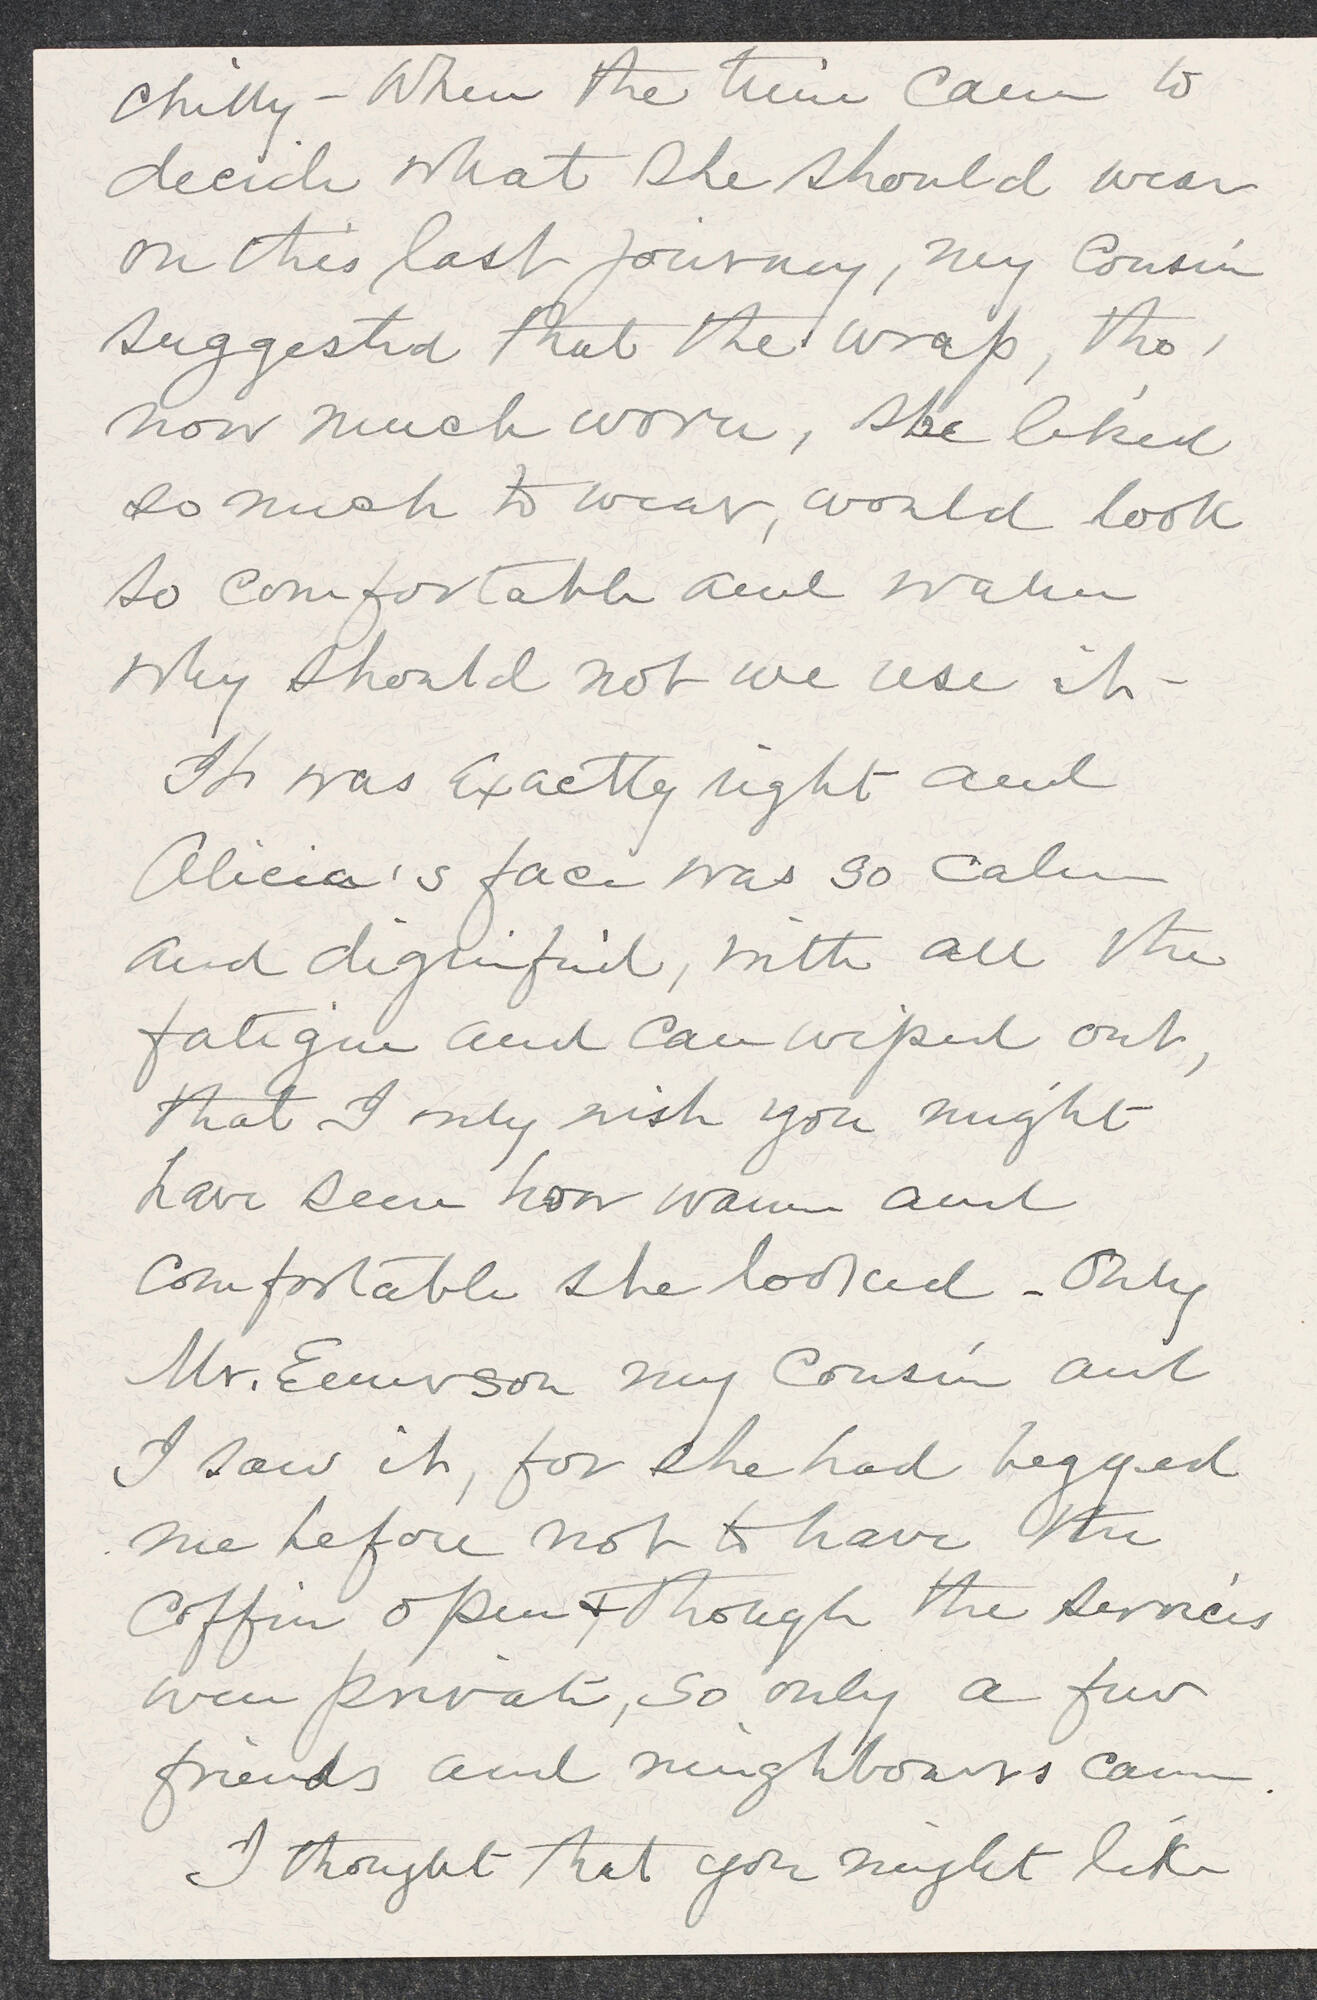 chilly – When the time came to
decide what she should wear
on this last journey, my cousin
suggested that the wrap, tho'
now much worn, she liked
so much to wear, would look
so comfortable and warm
why should not we use it –
It was exactly right and
Alicia's face was so calm
and dignified, with all the
fatigue and care wiped out,
that I only wish you might
have seen how warm and
comfortable she looked – Only
Mr. Emerson my cousin and
I saw it, for she had begged
me before not to have the
coffin open & though the services
were private, so only a few
friends and neighbours came.
I thought that you might like